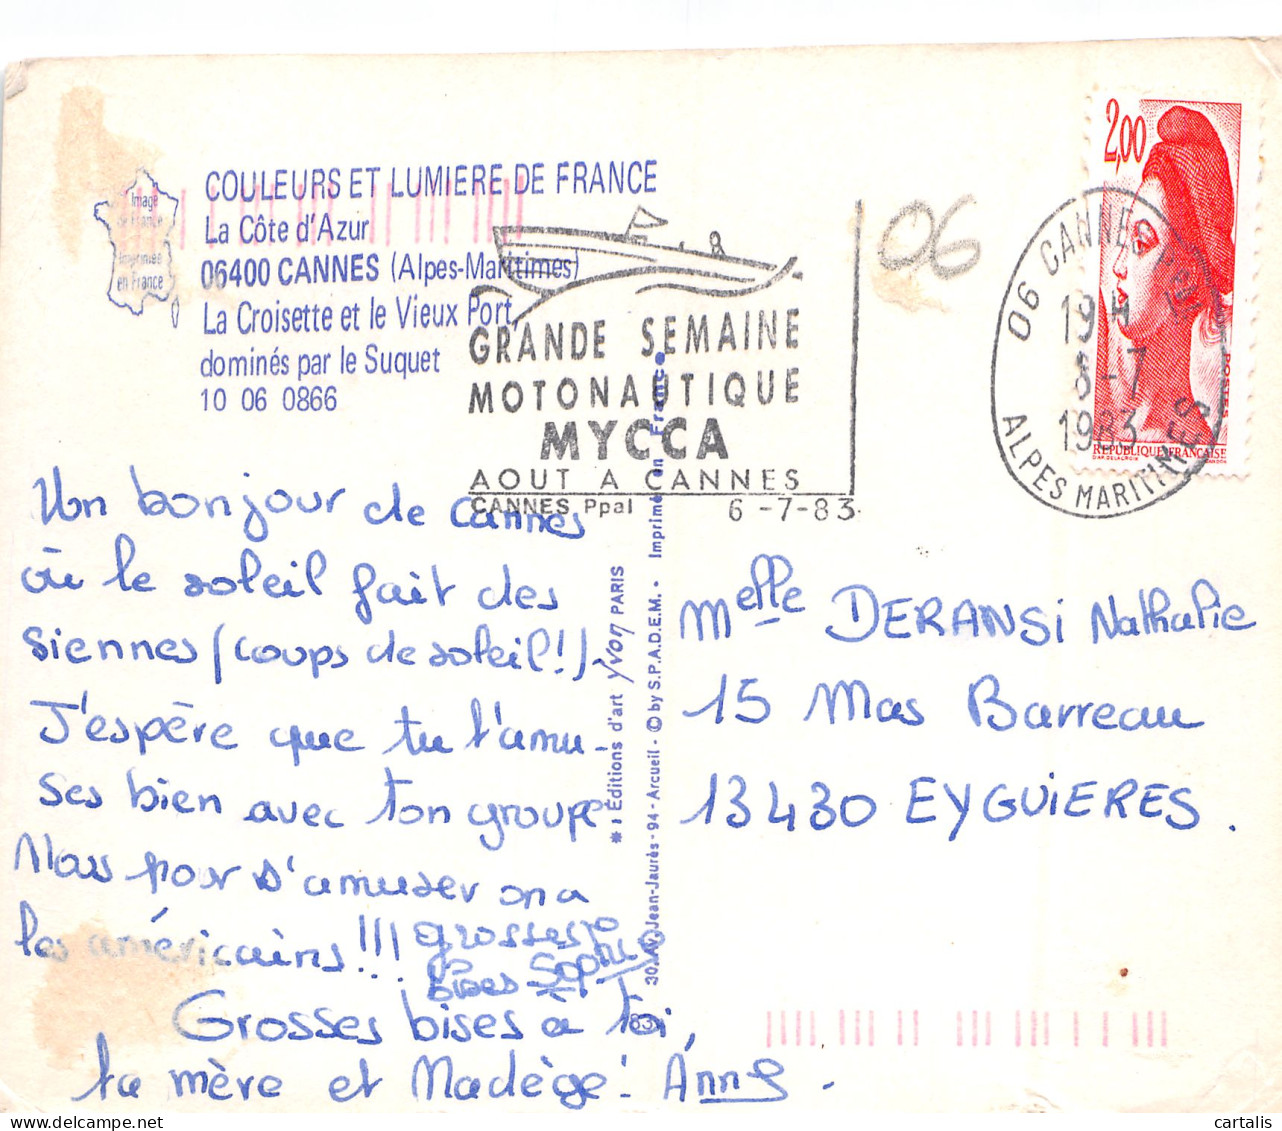 COULEURS ET LUMIERE DE FRANCE
La Côte d'Azur
06400 CANNES (Alpes-Maritimes)
La Croisette et le Vieux Port,
dominés par le Suquet
10 06 0866
Image
de France
Imprimée
en France
GRANDE SEMAINE
MOTONAUTIQUE
MYCCA
AOUT A CANNES
CANNES Ppal 6-7-83
06
06 CANNES
19H
-7
1983
ALPES MARITIMES
2,00
POSTES
REPUBLIQUE FRANCAISE
Un bonjour de Cannes
où le soleil fait des
siennes (coups de soleil!)
J'espère que tu t'amu-
ses bien avec ton groupe
Nous pour s'amuser on a
les américains!!!
Grosses
bises Sophie
Grosses bises à toi,
ta mère et Nadège! Anne.
* Éditions d'art Yvon PARIS
30, Av. Jean-Jaurès - 94 - Arcueil - © by S.P.A.D.E.M. • Imprimé en France
83
Melle DERANSi Nathalie
15 Mas Barreau
13430 EYGUiERES.
cartalis
www.delcampe.net